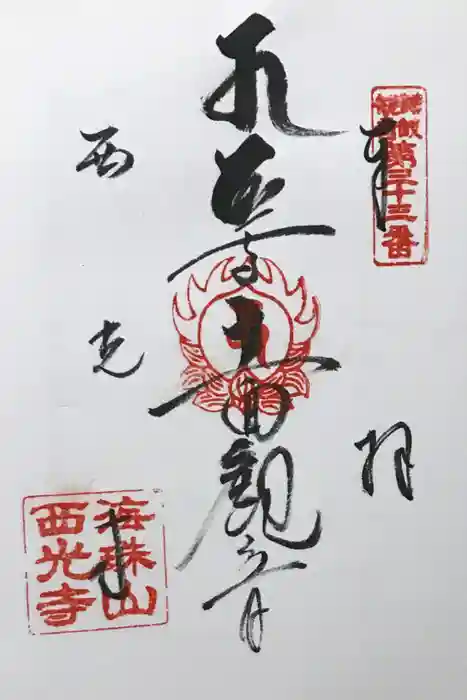 奉拝
第三十三番
本尊十一面観音
西光寺
海珠山
西光寺